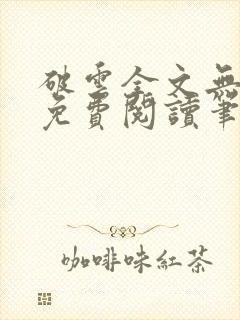 破雲全文無
免費閱讀筆
咖啡味紅茶